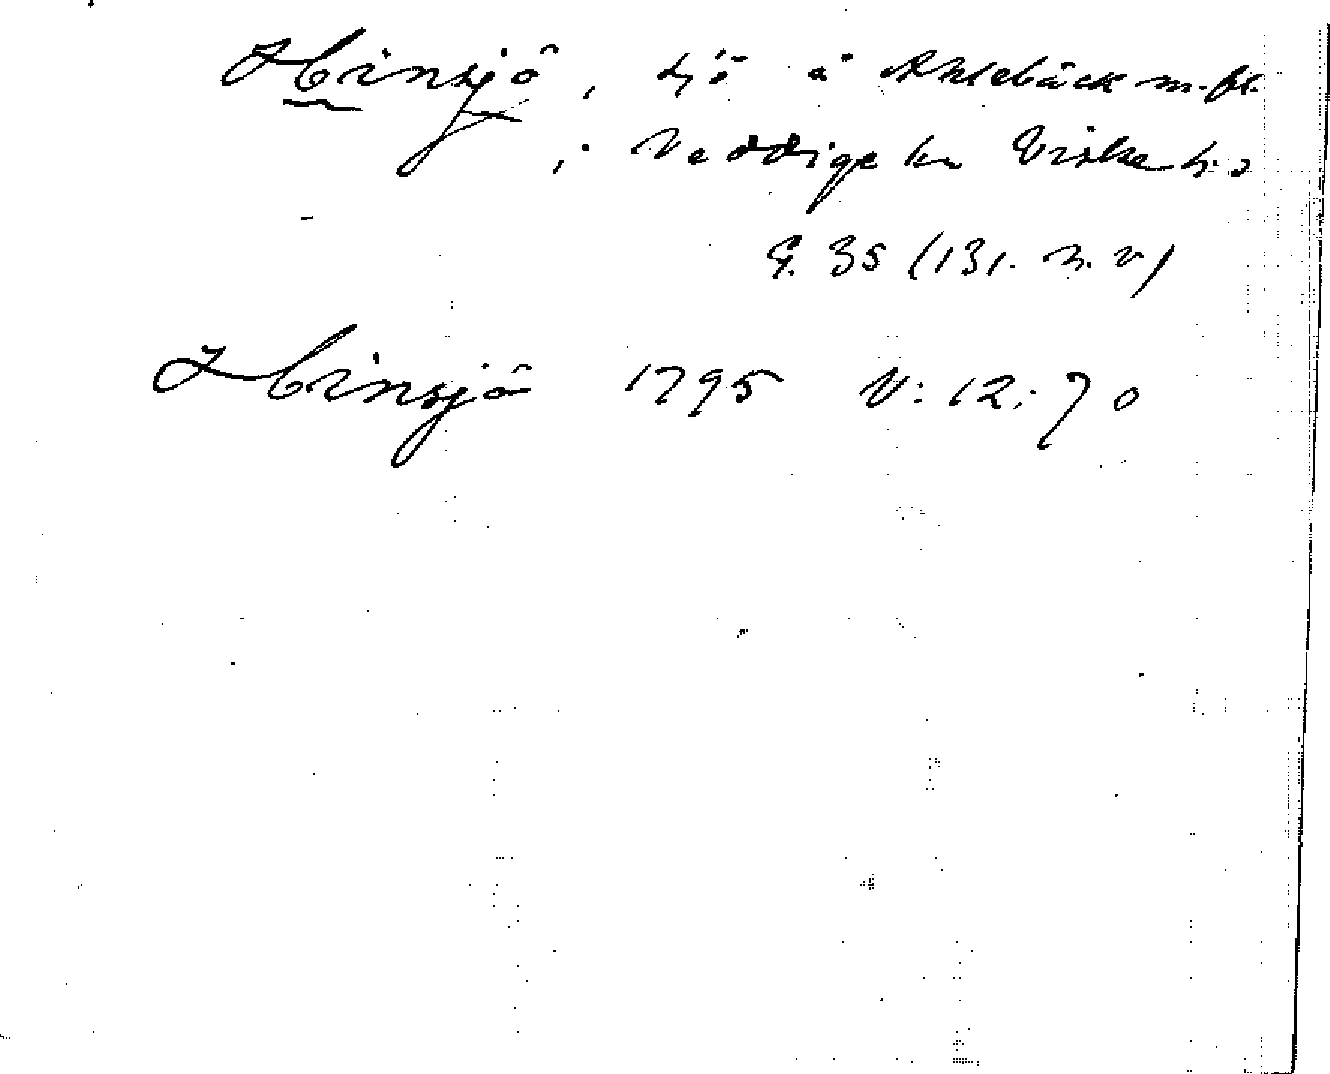 Hinsjö, sjö å Ahlebäck m. fl.
i Veddige sn Viske h:d
G. 35 (131. n. v)
Hinsjö 1795 V: 12: 70